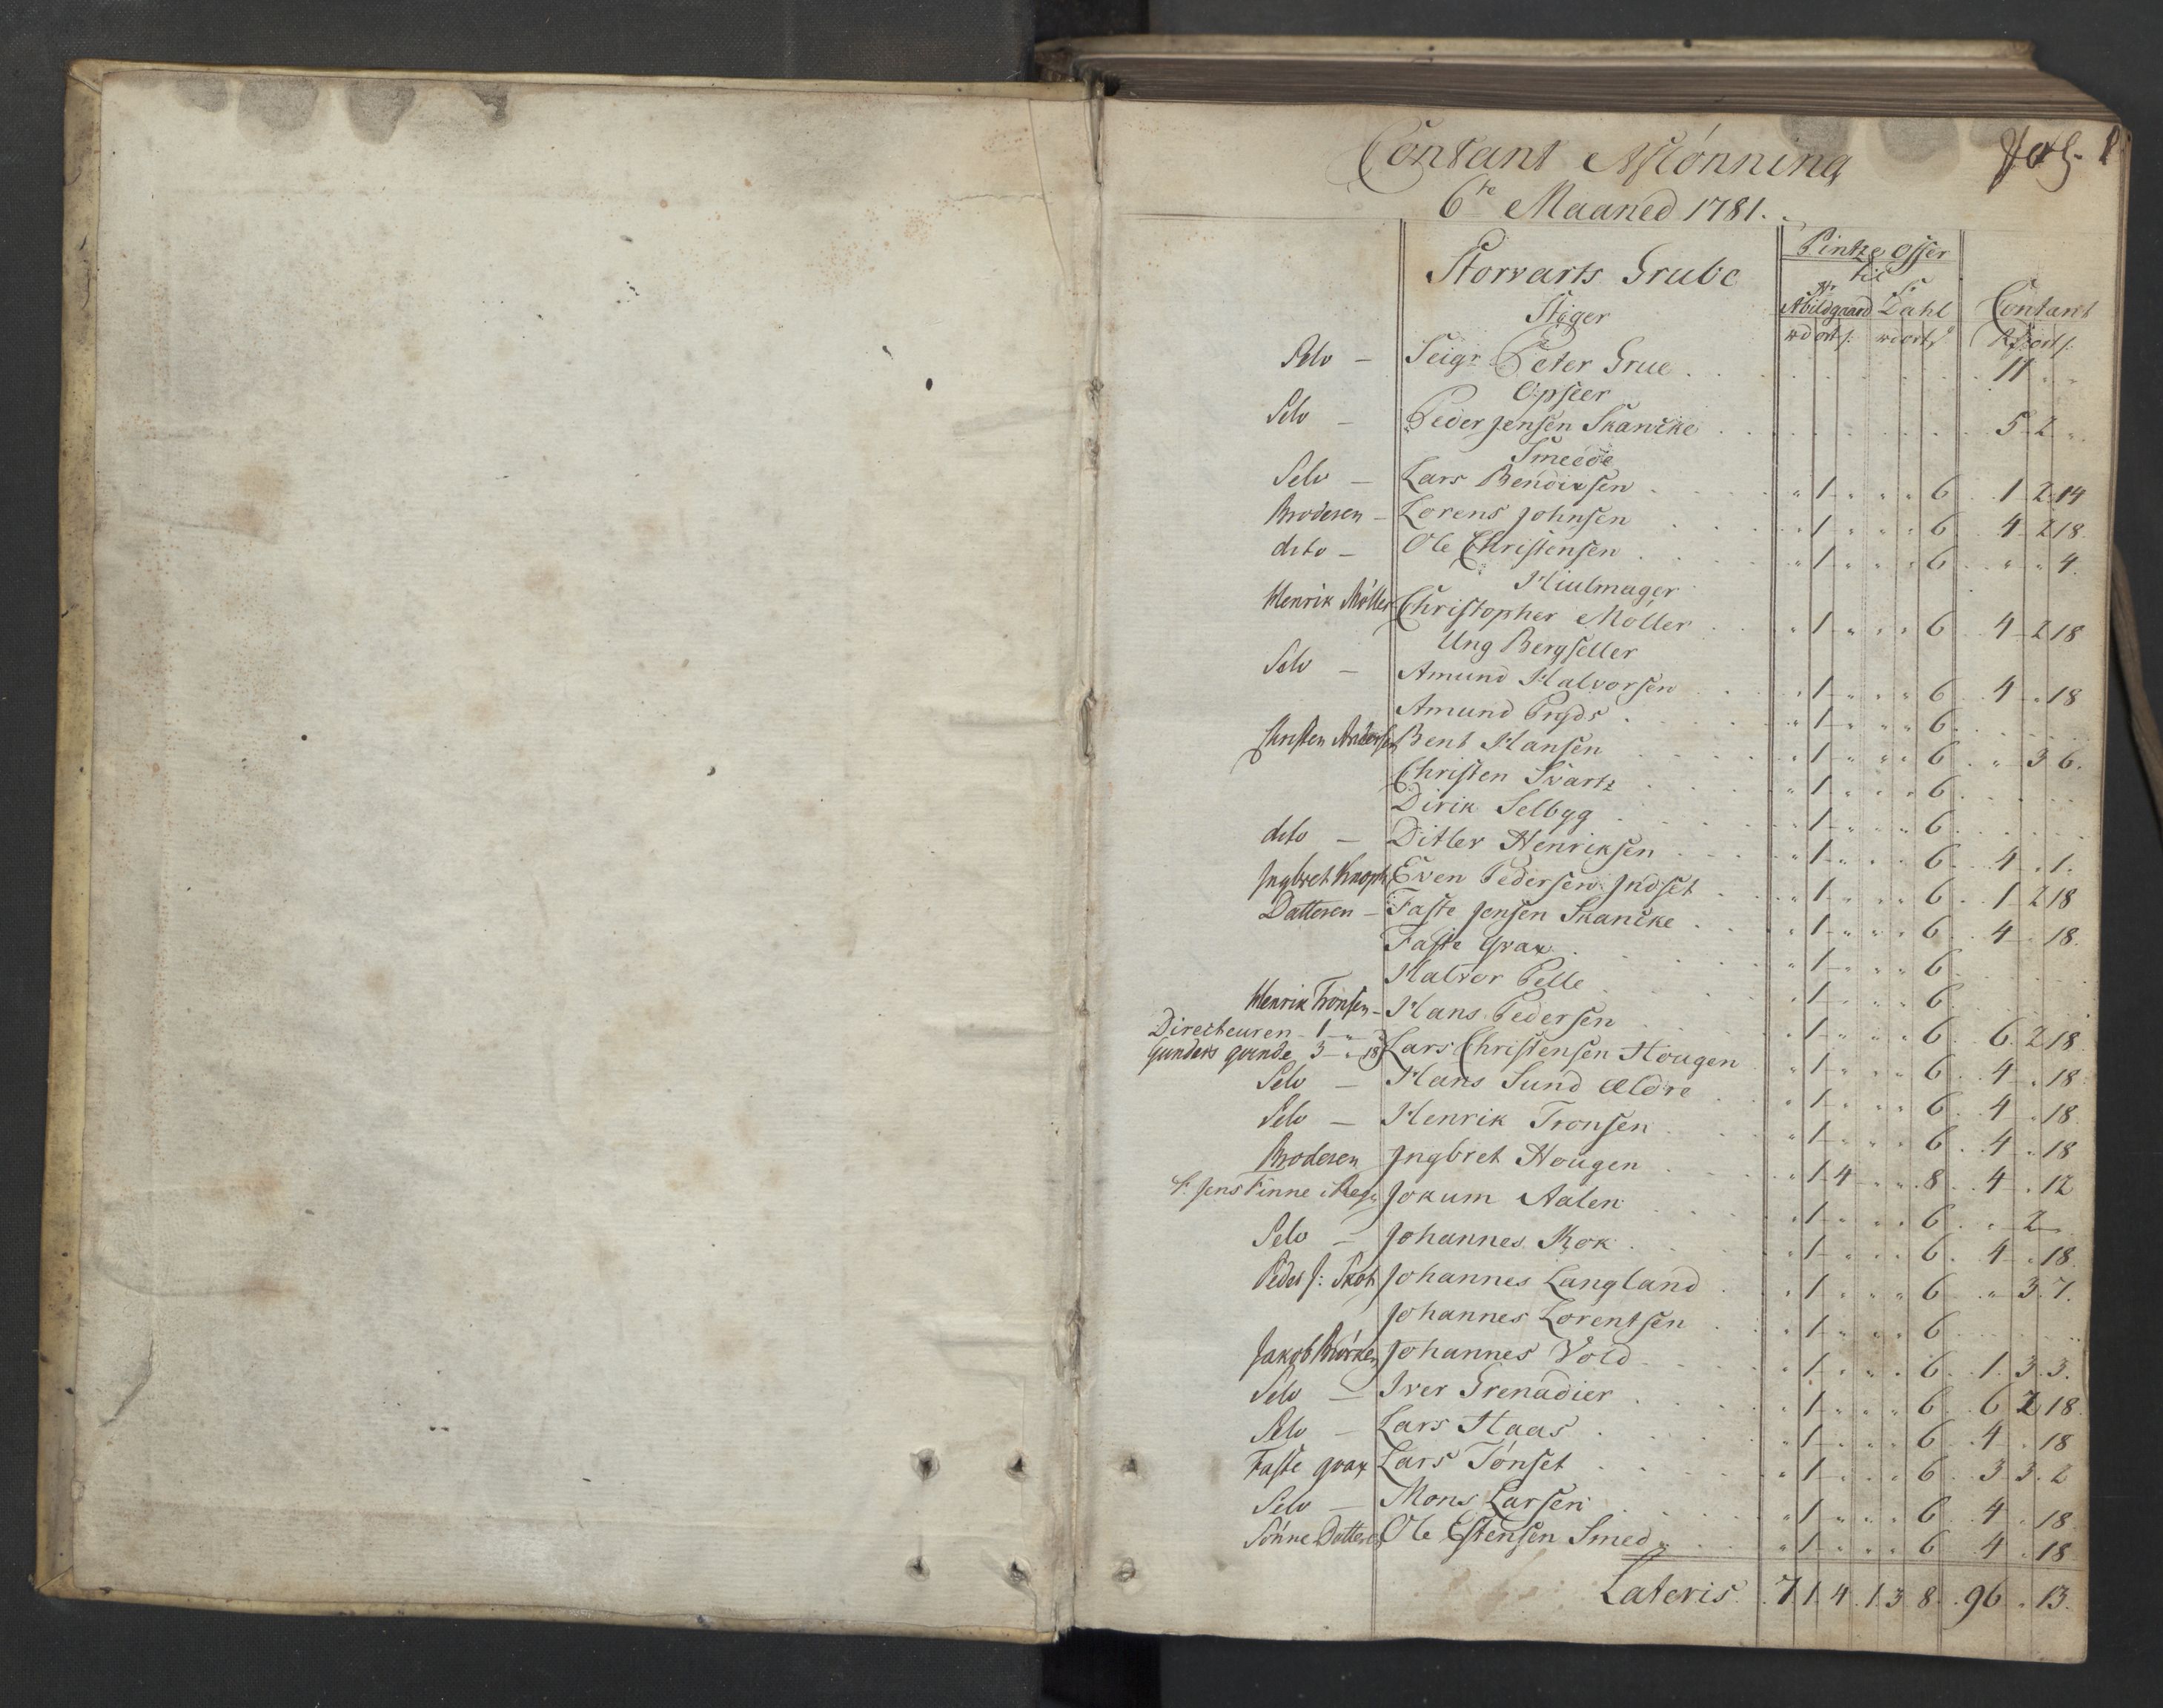 Contant Aflönning
6te Maaned 1781.
Storvarts Grube
Pintze Offer
til
Hr Abildgaard Hr Dahl
Contant
rd ort s. rd ort s. Rd ort s.
Stiger
Selv — Seigr Peter Grue 11 " "
Opseer
Selv — Peder Jensen Skancke 5 2 "
Smeede
Selv — Lars Bendixsen " 1 " " " 6 1 2 14
Broderen — Lorens Johnsen " 1 " " " 6 4 2 18
dito — Ole Christensen " 1 " " " 6 " " 4
Hiulmager
Henrik Möller Christopher Möller " 1 " " " 6 4 2 18
Ung Bergseller
Selv — Amund Halvorsen " 1 " " " 6 4 " 18
Amund Pryds " 1 " " " 6
Christen Andersen Bent Hansen " 1 " " " 6 " 3 6
Christen Svartz " 1 " " " 6
Dirik Selbyg " 1 " " " 6
dito — Ditlev Henriksen " 1 " " " 6 4 " 1
Ingbret Knoph Even Pedersen Indset " 1 " " " 6 1 2 18
Datteren — Faste Jensen Skancke " 1 " " " 6 4 " 18
Faste Grax " 1 " " " 6
Halvor Pelle " 1 " " " 6
Henrik Tronsen — Hans Pedersen " 1 " " " 6 6 2 18
Directeuren 1 " "
Gunders qvinde 3 " 18 Lars Christensen Hougen " 1 " " " 6 4 " 18
Selv — Hans Sund Ældre " 1 " " " 6 4 " 18
Selv — Henrik Tronsen " 1 " " " 6 4 " 18
Broderen Ingbret Hougen " 1 4 " " 8 4 " 12
Jens Finne Jokum Aalen " 1 " " " 6 " 2
Selv — Johannes Kok " 1 " " " 6 4 " 18
Peder J: Skot Johannes Langland " 1 " " " 6 " 3 7
Johannes Lorentsen " 1 " " " 6
Jakob Biörken Johannes Vold " 1 " " " 6 1 3 3
Selv — Iver Grenadier " 1 " " " 6 6 2 18
Selv — Lars Haas " 1 " " " 6 4 " 18
Faste grax Lars Tönset " 1 " " " 6 3 3 2
Selv — Mons Larsen " 1 " " " 6 4 " 18
Sönne Datteren Ole Estensen Smed " 1 " " " 6 4 " 18
Lateris 7 1 4 1 3 8 96 " 13